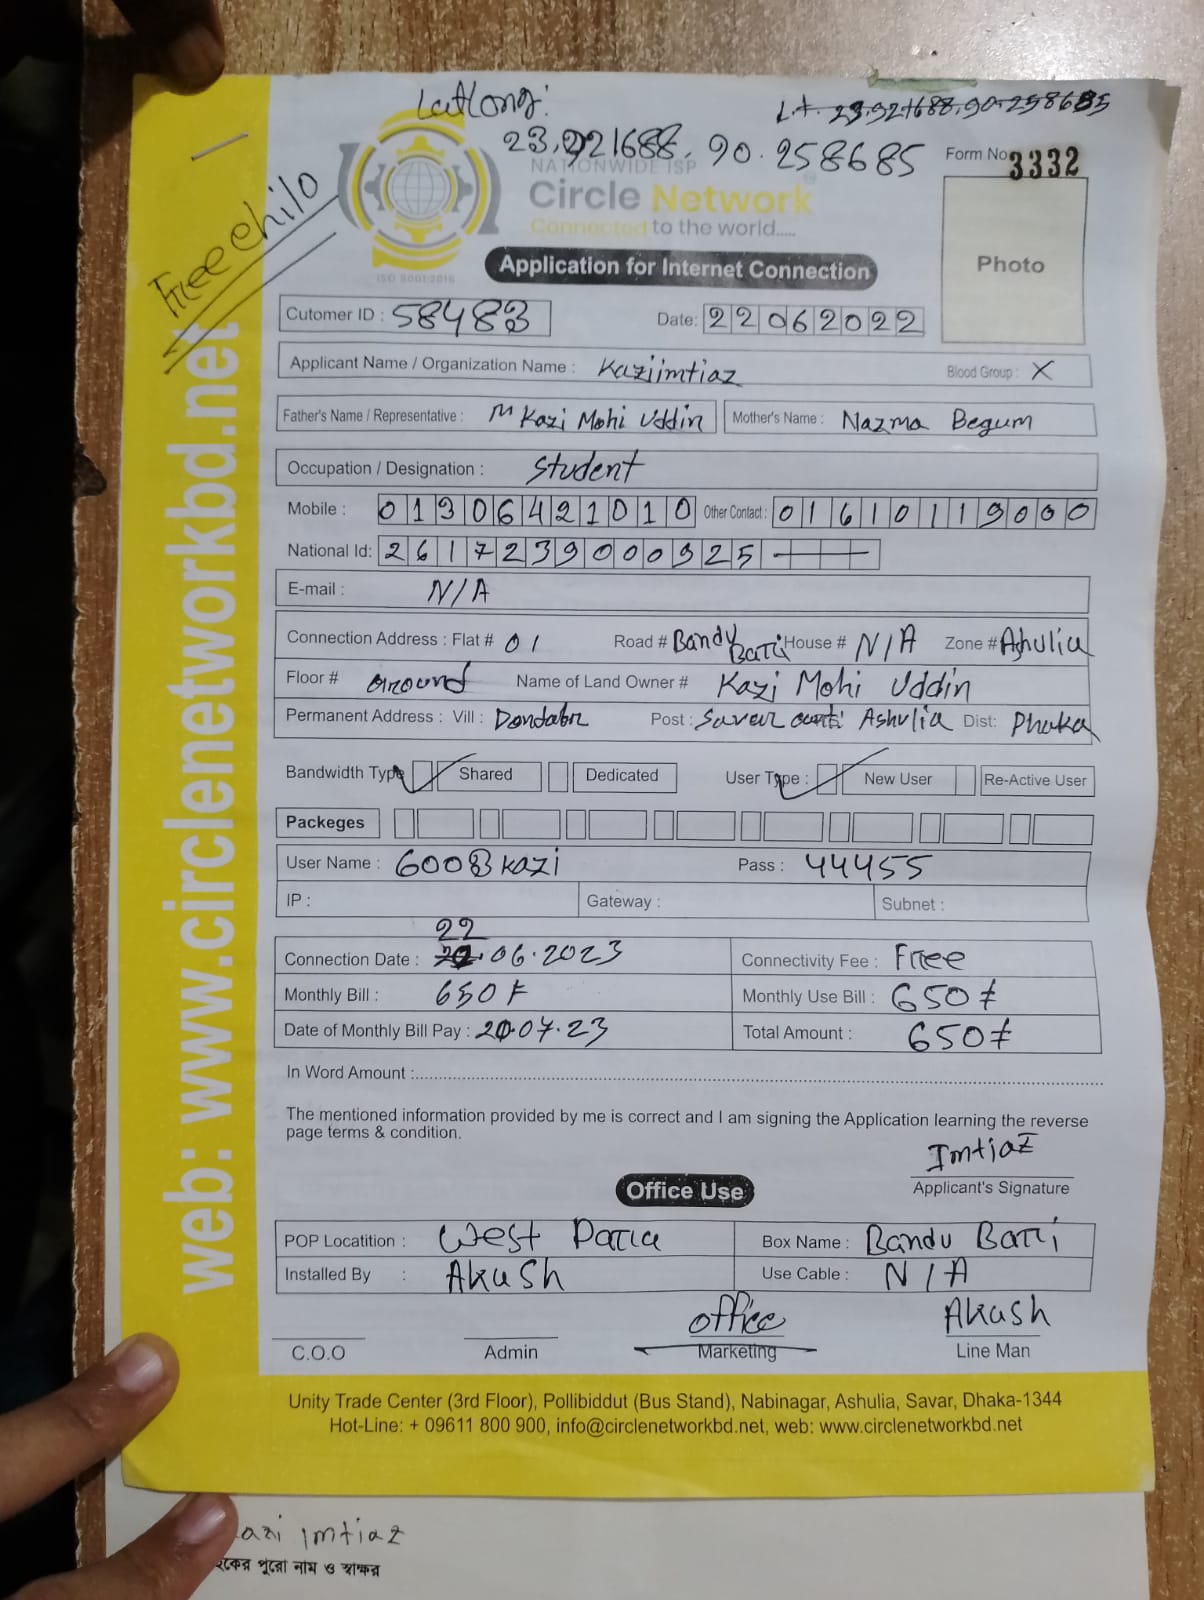 LatLong:
23.921688, 90.258685
Form No 3332
Free chilo
NATIONWIDE ISP
Circle Network
Connected to the world.....
ISO 9001:2015
Application for Internet Connection
Photo
Cutomer ID : 58483
Date: 22062022
Applicant Name / Organization Name : Kaziimtiaz
Blood Group : X
Father's Name / Representative : M Kazi Mohi Uddin
Mother's Name : Nazma Begum
Occupation / Designation : Student
Mobile : 01306421010 Other Contact : 01610119000
National Id: 2617239000925
E-mail : N/A
Connection Address : Flat # 01 Road # Bandu Batti House # N/A Zone # Ashulia
Floor # Ground Name of Land Owner # Kazi Mohi Uddin
Permanent Address : Vill : Dendabr Post : Savar cantt Ashulia Dist: Dhaka
Bandwidth Type Shared Dedicated User Type : New User Re-Active User
Packeges
User Name : 6008kazi Pass : 44455
IP : Gateway : Subnet :
22
Connection Date : .06.2023 Connectivity Fee : Free
Monthly Bill : 650 Monthly Use Bill : 650
Date of Monthly Bill Pay : 20.07.23 Total Amount : 650
In Word Amount :
The mentioned information provided by me is correct and I am signing the Application learning the reverse
page terms & condition.
Imtiaz
Applicant's Signature
Office Use
POP Locatition : West Para Box Name : Bandu Batti
Installed By : Akash Use Cable : N/A
office Akash
C.O.O Admin Marketing Line Man
Unity Trade Center (3rd Floor), Pollibiddut (Bus Stand), Nabinagar, Ashulia, Savar, Dhaka-1344
Hot-Line: + 09611 800 900, info@circlenetworkbd.net, web: www.circlenetworkbd.net
web: www.circlenetworkbd.net
azi Imtiaz
হকের পুরো নাম ও স্বাক্ষর